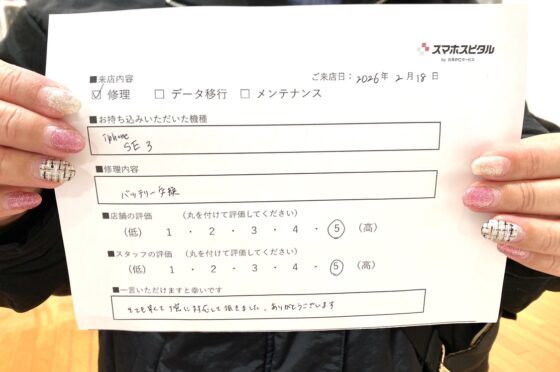 スマホスピタル
■来店内容
ご来店日：2026年2月18日
☑ 修理 □ データ移行 □ メンテナンス
■お持ち込みいただいた機種
iphone
SE3
■修理内容
バッテリー交換
■店舗の評価 （丸を付けて評価してください）
（低） 1 ・ 2 ・ 3 ・ 4 ・ 5 （高）
■スタッフの評価 （丸を付けて評価してください）
（低） 1 ・ 2 ・ 3 ・ 4 ・ 5 （高）
■一言いただけますと幸いです
とても早くて丁寧に対応して頂きました。ありがとうございます